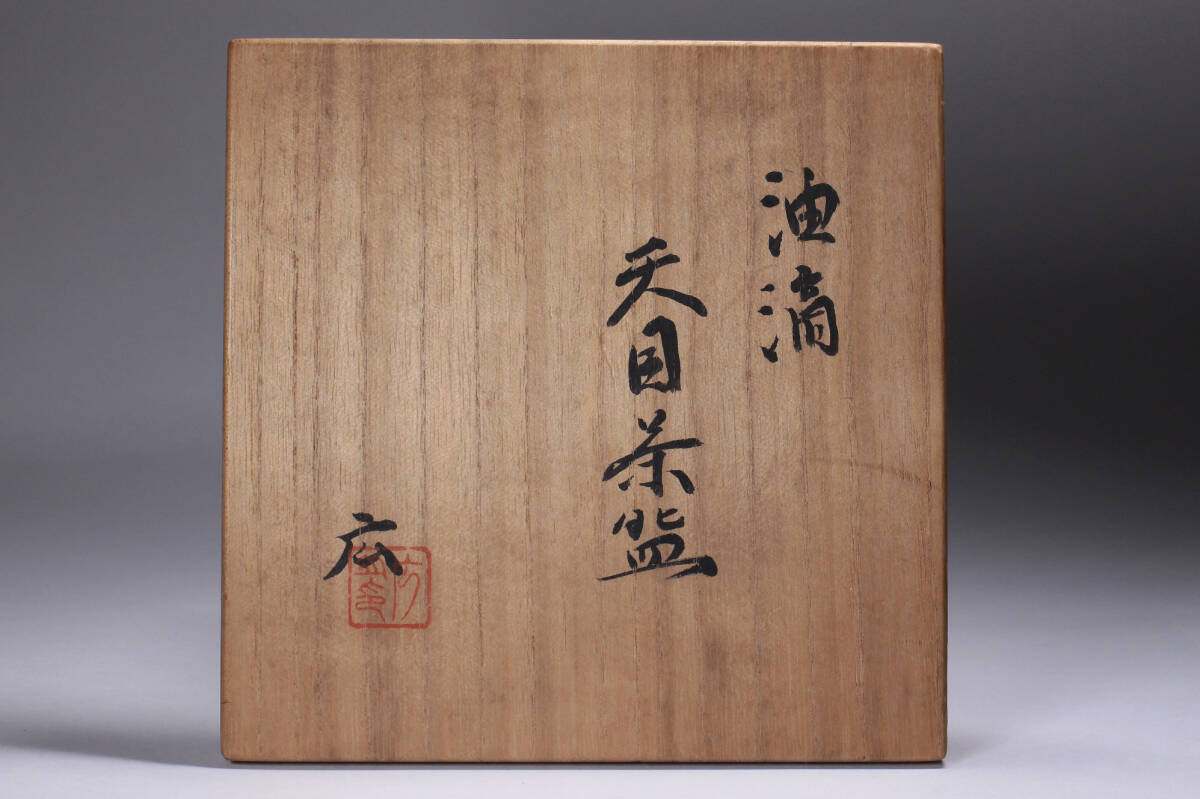 油滴
天目茶盌
広